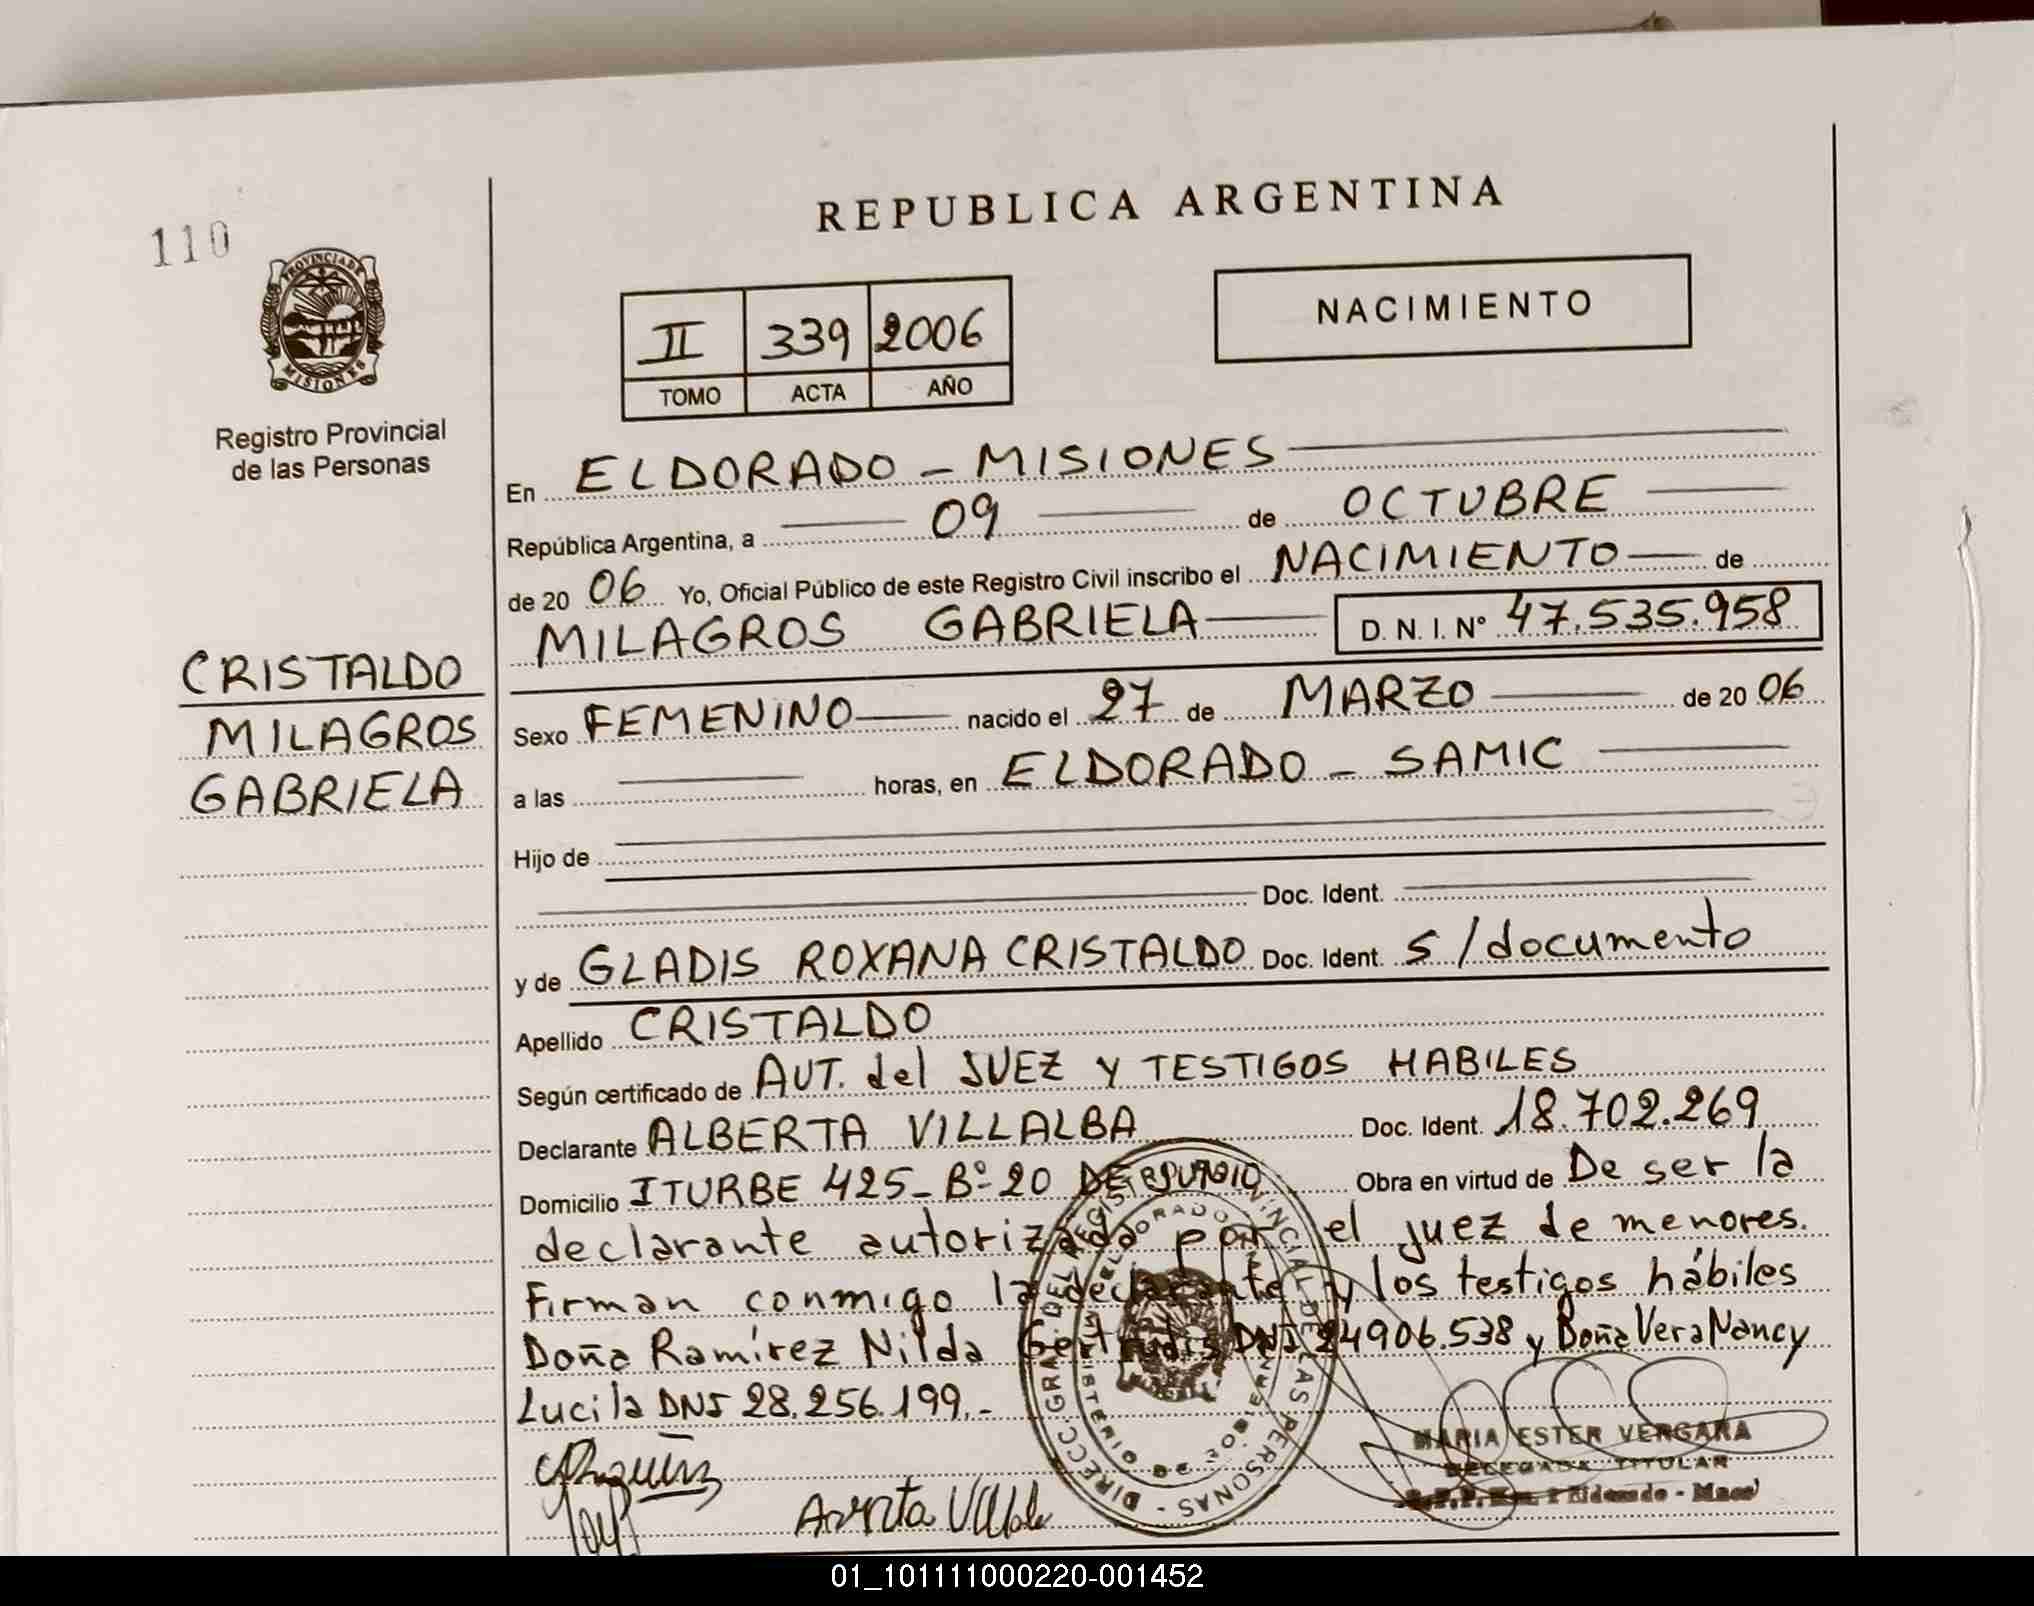 REPUBLICA ARGENTINA
110
PROVINCIA DE
MISIONES
Registro Provincial
de las Personas
II 339 2006
TOMO ACTA AÑO
NACIMIENTO
En ELDORADO - MISIONES
República Argentina, a 09 de OCTUBRE
de 2006 Yo, Oficial Público de este Registro Civil inscribo el NACIMIENTO de
MILAGROS GABRIELA D. N. I. Nº 47.535.958
CRISTALDO
MILAGROS
GABRIELA
Sexo FEMENINO nacido el 27 de MARZO de 2006
a las horas, en ELDORADO - SAMIC
Hijo de
Doc. Ident.
y de GLADIS ROXANA CRISTALDO Doc. Ident. S/documento
Apellido CRISTALDO
Según certificado de AUT. del JUEZ Y TESTIGOS HABILES
Declarante ALBERTA VILLALBA Doc. Ident. 18.702.269
Domicilio ITURBE 425- Bº 20 DE JUNIO Obra en virtud de De ser la
declarante autorizada por el juez de menores.
Firman conmigo la declarante y los testigos hábiles
Doña Ramírez Nilda Gertrudis DNI 24906.538 y Doña Vera Nancy
Lucila DNI 28.256.199.-
DIRECC. GRAL. DEL REGISTRO PROVINCIAL DE LAS PERSONAS
ELDORADO
MARIA ESTER VERGARA
DELEGADA TITULAR
01_101111000220-001452